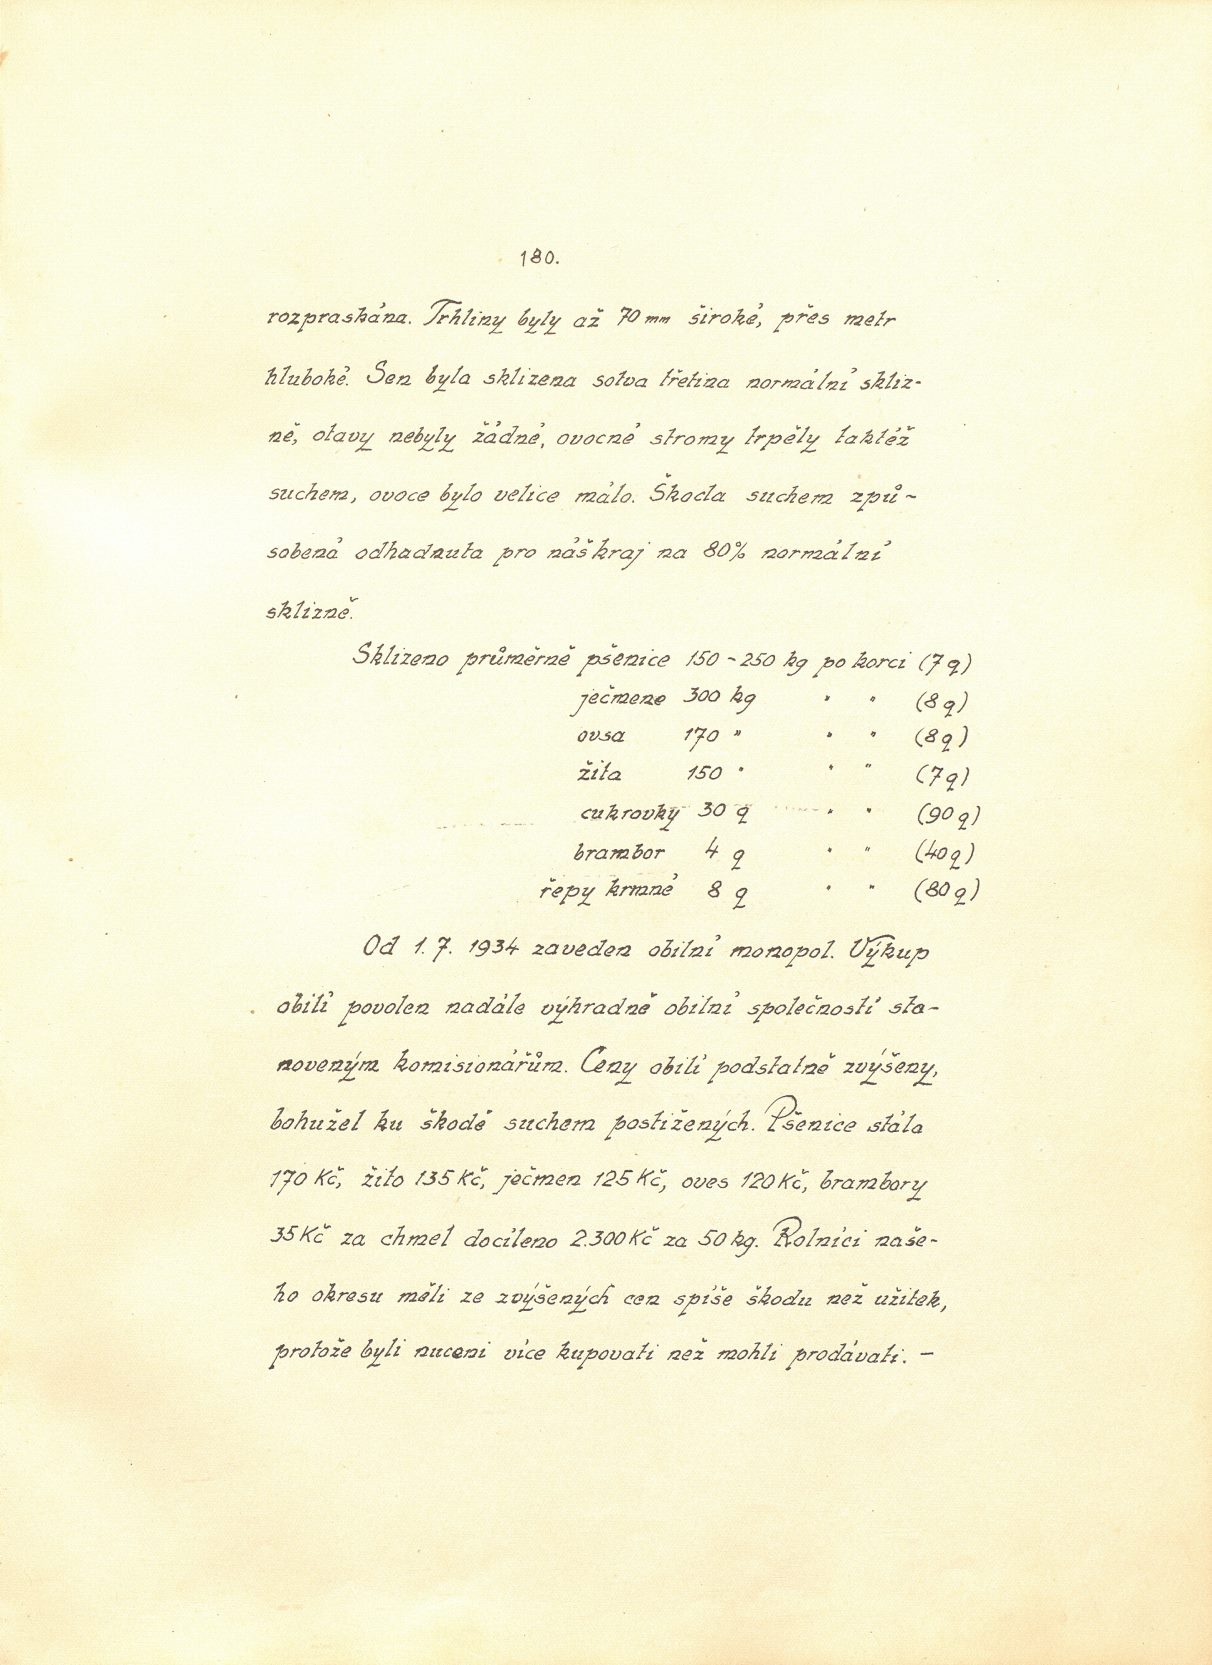 180.
rozpraskána. Trhliny byly až 70 mm široké, přes metr
hluboké. Sen byla sklizena sotva třetina normální skliz-
ně, otavy nebyly žádné, ovocné stromy trpěly taktéž
suchem, ovoce bylo velice málo. Škoda suchem způ-
sobená odhadnuta pro náš kraj na 80% normální
sklizně.
Sklizeno průměrně pšenice 150-250 kg po korci (7 q)
ječmene 300 kg " " (8 q)
ovsa 170 " " " (8 q)
žita 150 " " " (7 q)
cukrovky 30 q " " (90 q)
brambor 4 q " " (40 q)
řepy krmné 8 q " " (80 q)
Od 1. 7. 1934 zaveden obilní monopol. Výkup
obilí povolen nadále výhradně obilní společností sta-
noveným komisionářům. Ceny obilí podstatně zvýšeny,
bohužel ku škodě suchem postižených. Pšenice stála
170 Kč, žito 135 Kč, ječmen 125 Kč, oves 120 Kč, brambory
35 Kč za chmel docíleno 2.300 Kč za 50 kg. Rolníci naše-
ho okresu měli ze zvýšených cen spíše škodu než užitek,
protože byli nuceni více kupovati než mohli prodávati. -